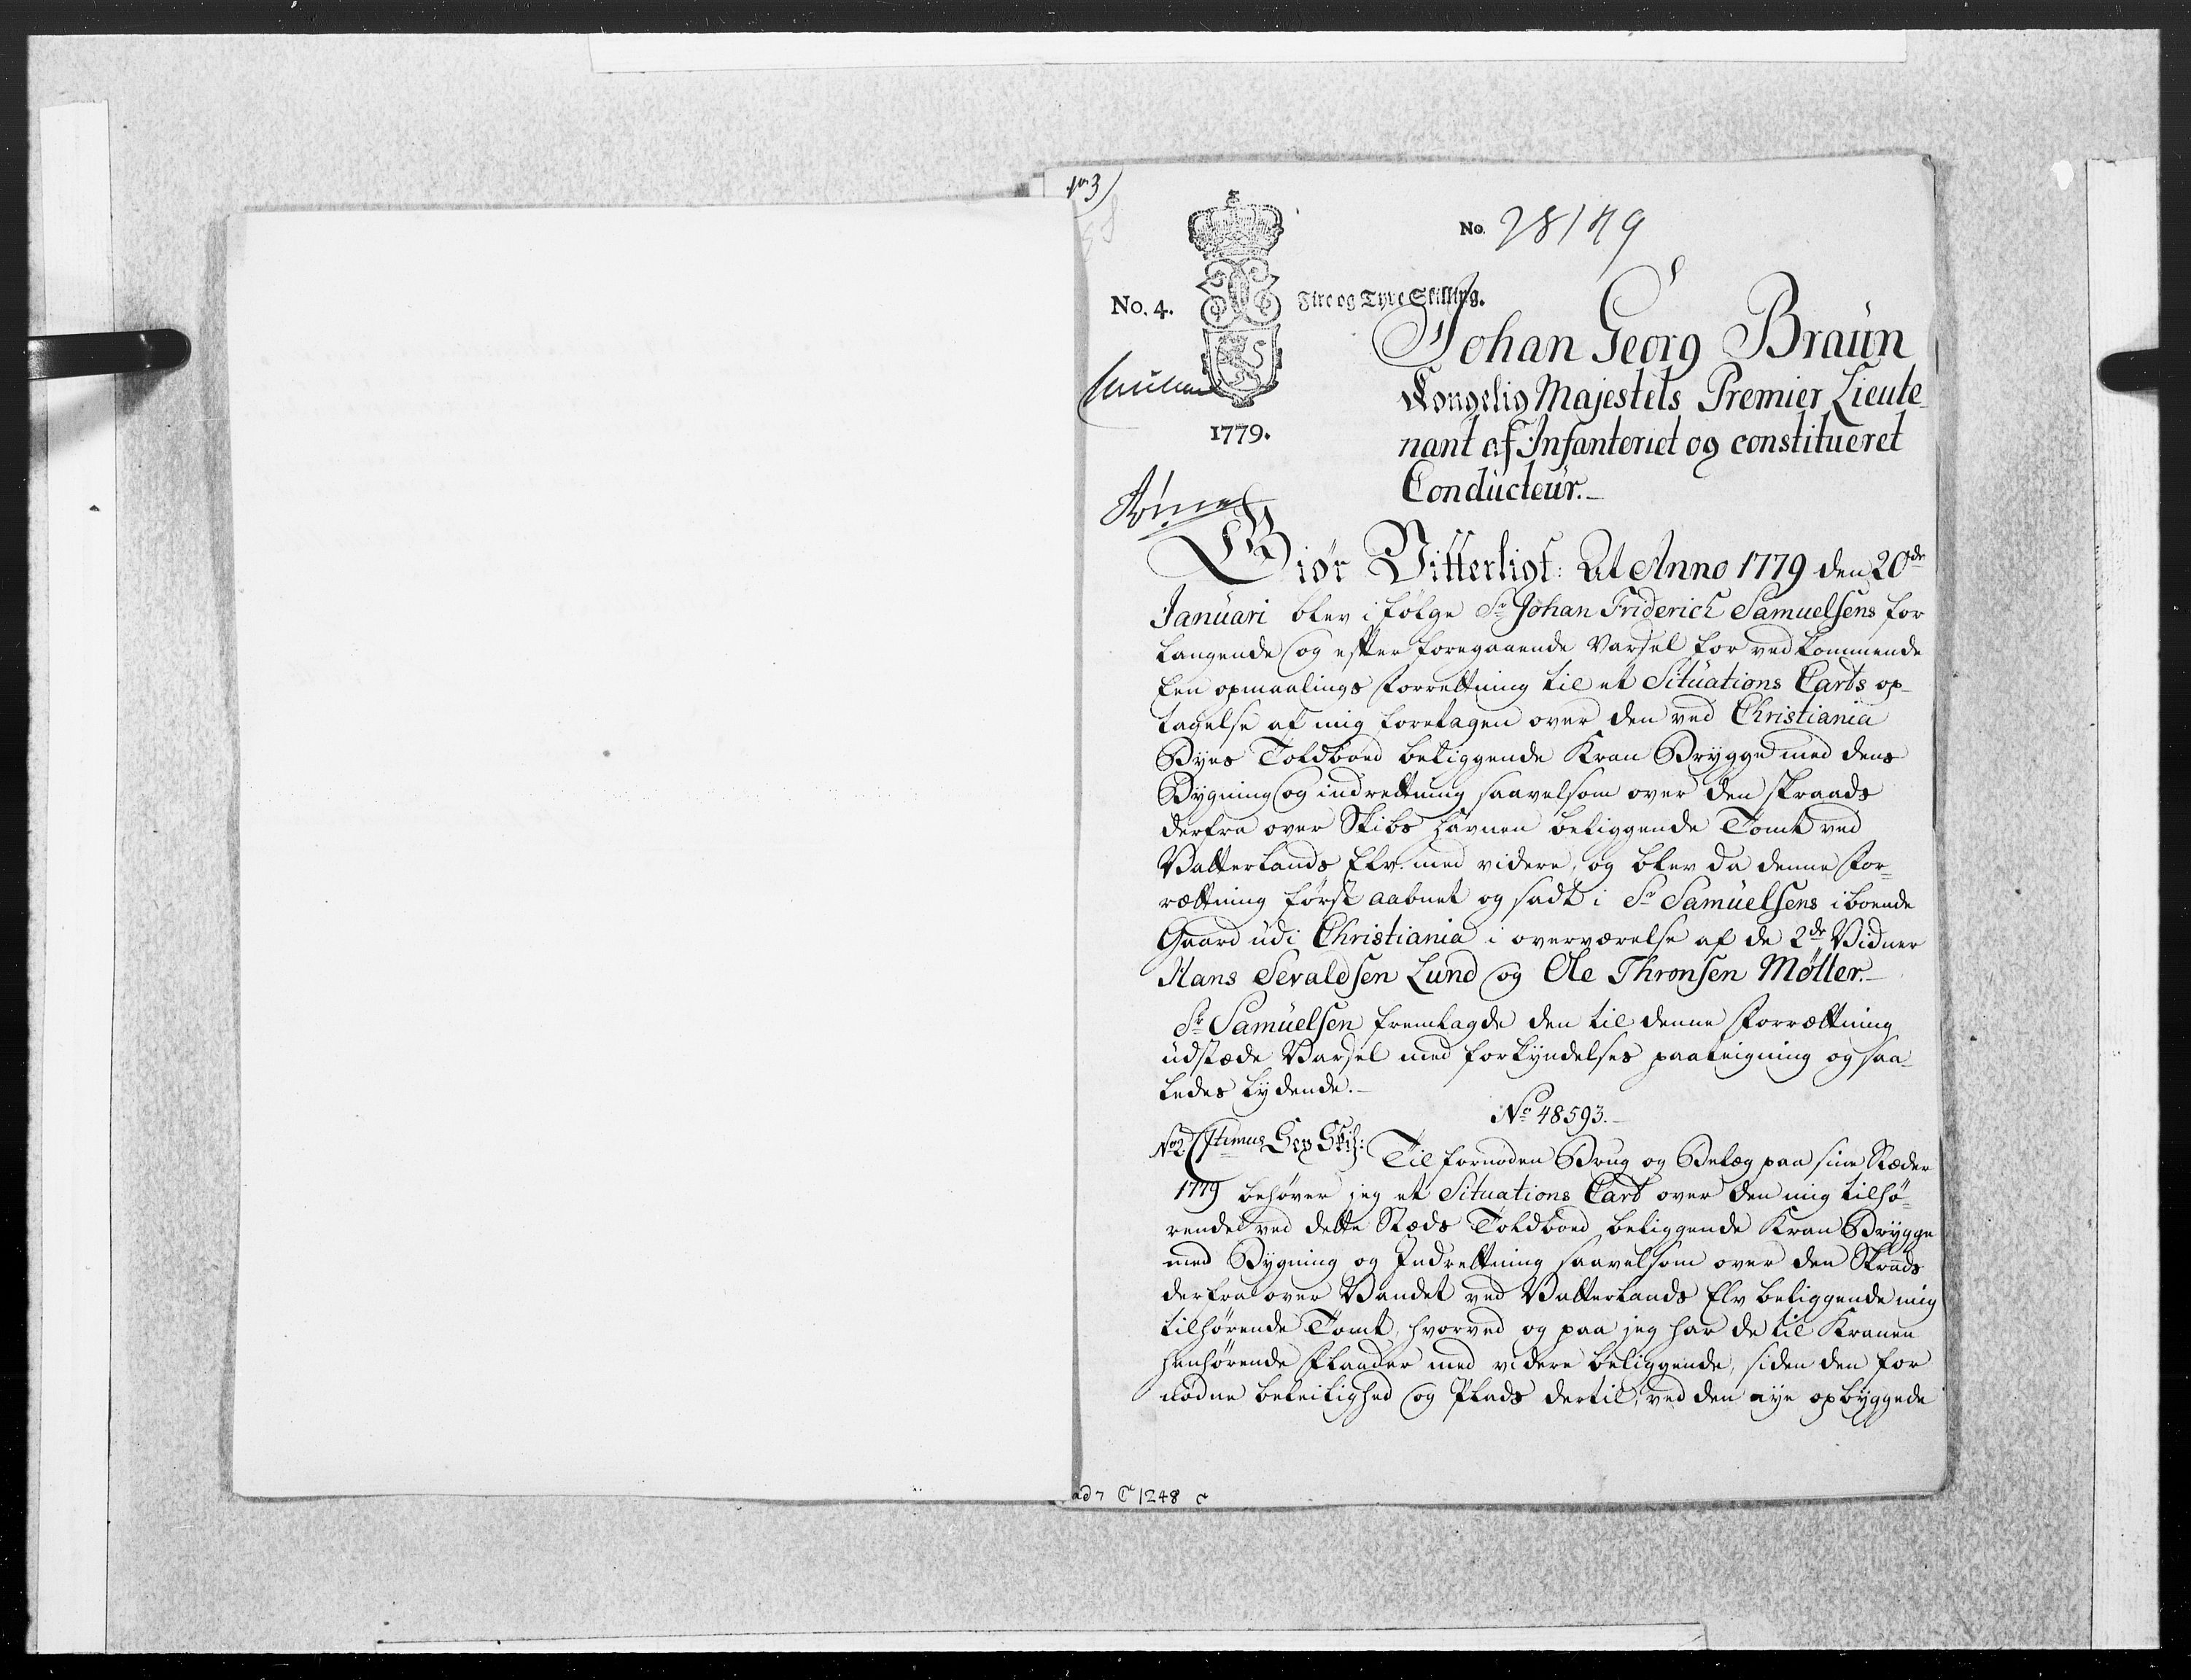 No 3)
No. 28149
No. 4. Fire og Tyve Skilling.
1779.
Johan Georg Braün
Kongelig Majestets Premier Lieute-
nant af Infanteriet og constitueret
Conducteur.-
Giør Vitterligt: At Anno 1779 den 20de
Januari blev i følge Sr Johan Friderich Samuelsens for
langende og efter foregaaende Varsel for vedkommende
Een opmaalings Forrettning til et Situations Carts op-
tagelse af mig foretagen over den ved Christiania
Byes Toldboed beliggende Kran Brygge med dens
Bygning og indrettning saavelsom over den straads
derfra over Skibs Havnen beliggende Tomt ved
Vatterlands Elv med videre, og blev da denne For-
rættning først aabnet og sadt i Sr Samuelsens iboende
Gaard udi Christiania i overværelse af de 2de Vidner
Hans Sevaldsen Lund og Ole Thronsen Møller.-
Sr Samuelsen fremlagde den til denne Forrættning
udstæde Varsel med forkyndelses paateigning og saa-
ledes lydende.-
No 48593.-
No 2 Sex Skill:
1779
Til fornøden Brug og Belæg paa sine Stæder
behøver jeg et Situations Cart over den mig tilhø-
rende ved dette Stæds Toldboed beliggende Kran Brygge
med Bygning og Indrettning saavelsom over den Strads
derfra over Vandet ved Vatterlands Elv beliggende mig
tilhørende Tomt, hvorved og paa jeg har de til Kranen
henhørende Flaader med videre beliggende, siden den for
nødne beleilighed og Plads dertil, ved den nye opbyggede
ad 7 C 1248 c